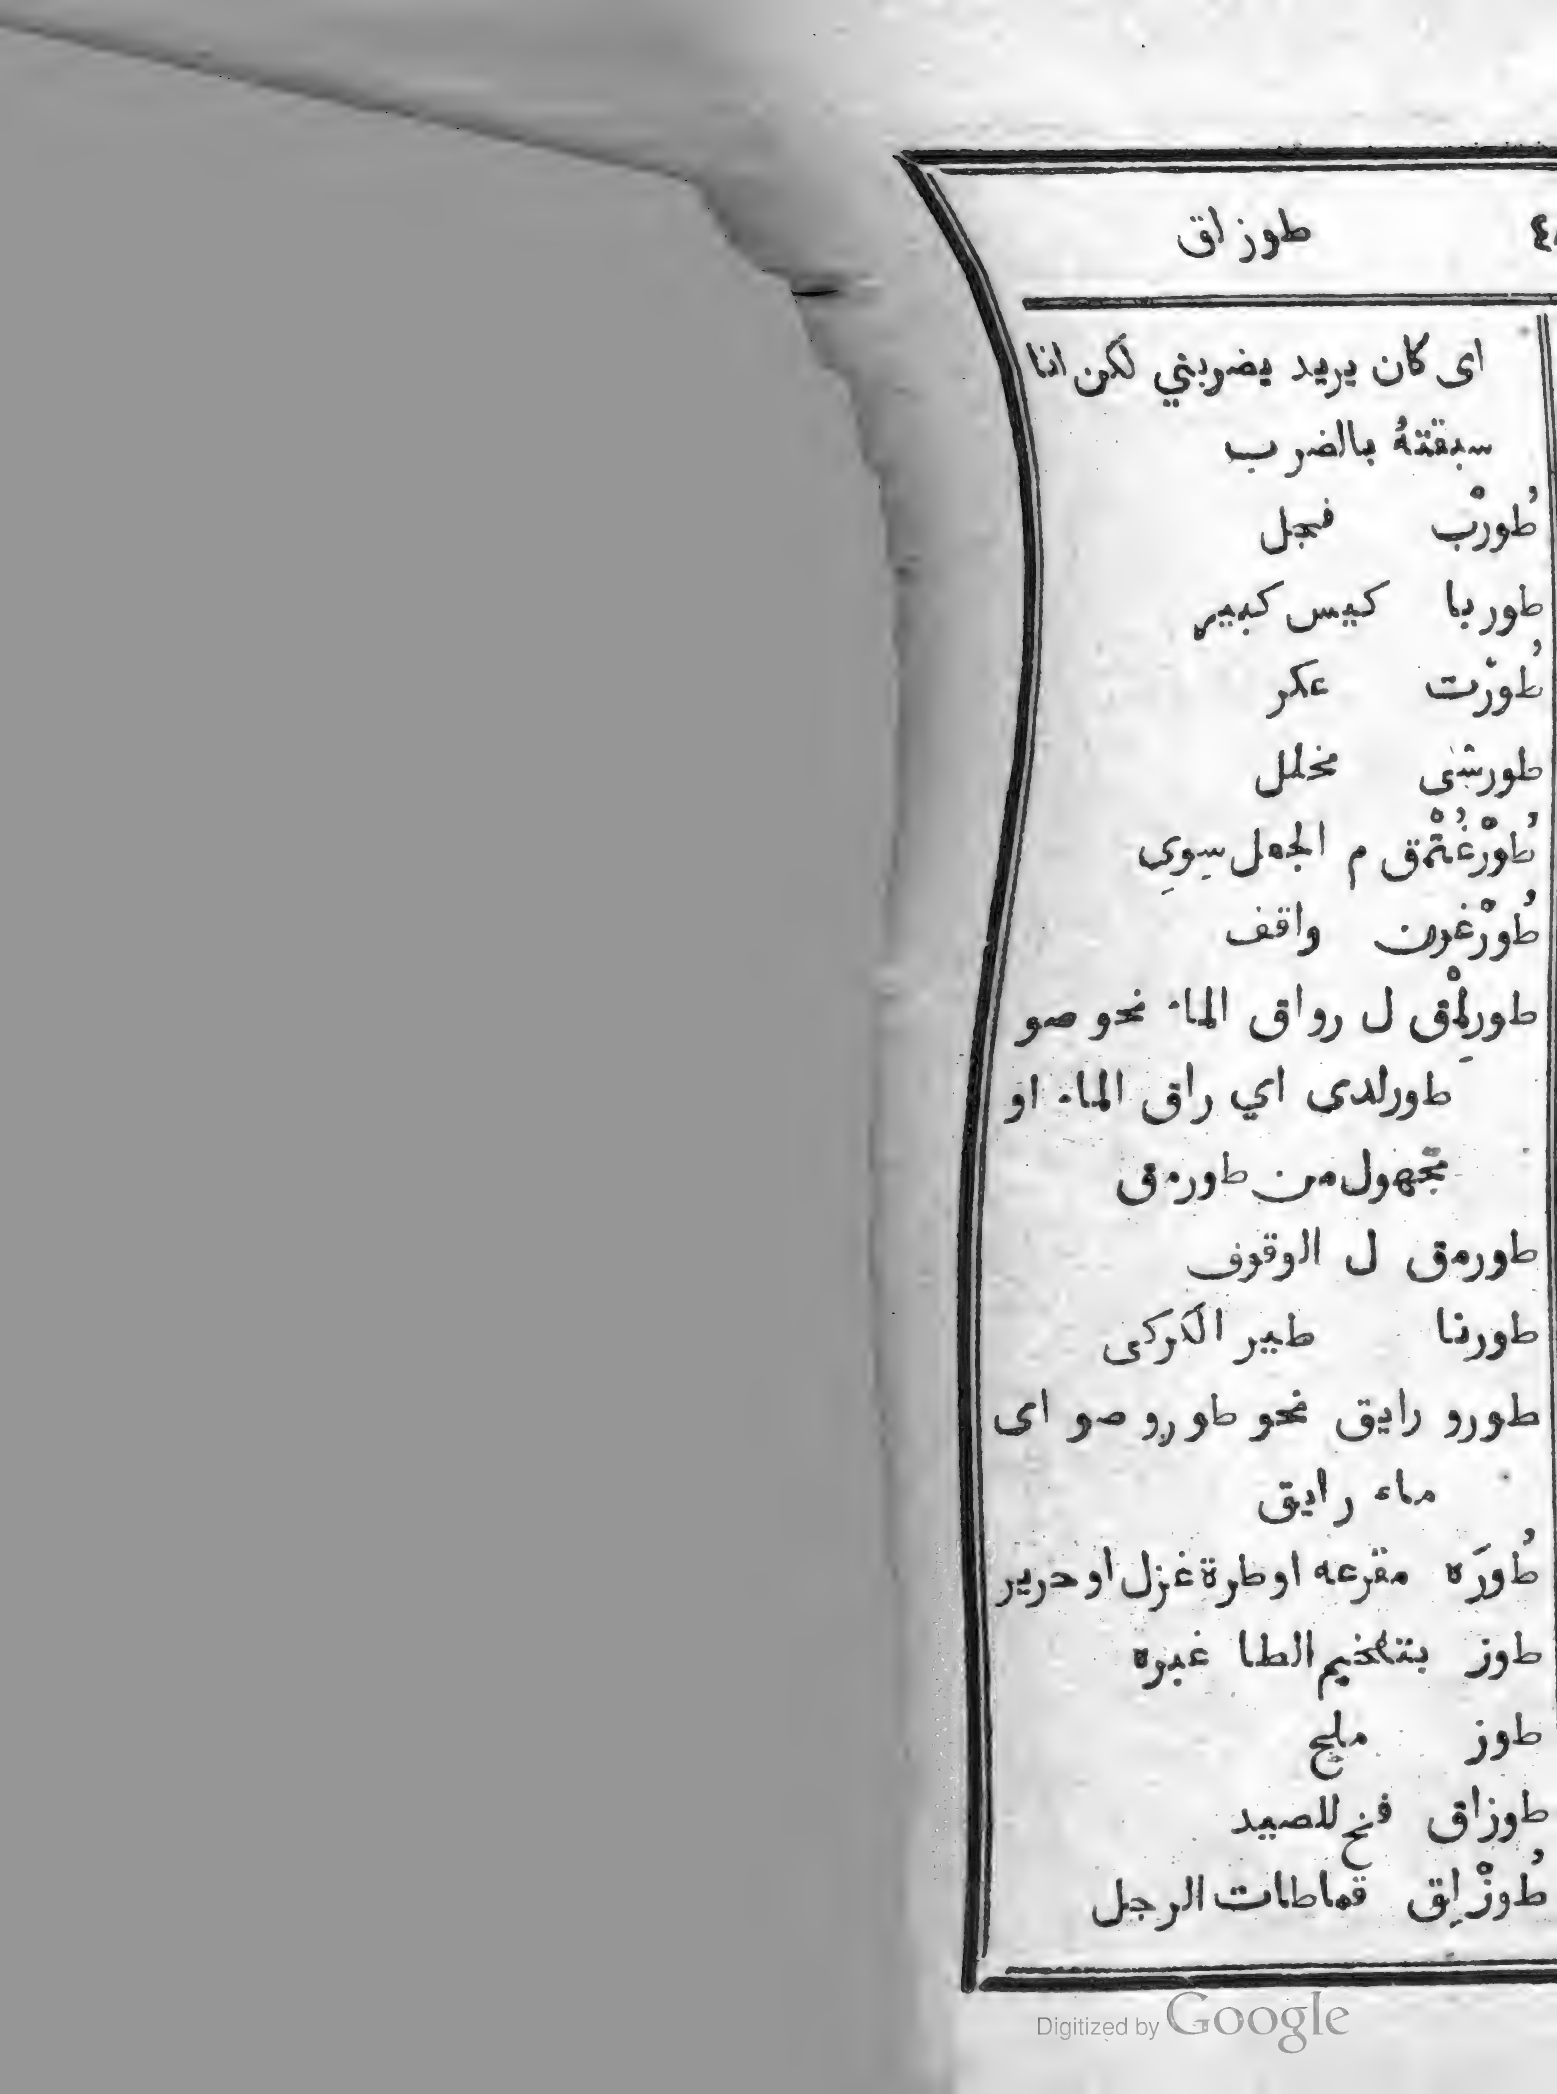 طوزاق
اى كان يريد يضوبني لكن انا
سبقتهُ بالضرب
طُورْب فجل
طوربا كيس كبير
طُورْت عكر
طورشى مخلل
طُوْرْغُتْمق م الجعل سِوىِ
طُورْغون واقف
طورلِمْق ل رواق الماء نحو صو
طورلدى اي راق الماء او
مجهول من طورمق
طورمق ل الوقوف
طورنا طير الكركى
طورو رايق نحو طورو صو اى
ماء رايق
طُورَه مقرعه او طرة غزل او حرير
طوز بتفخيم الطا غبره
طوز مليح
طوزاق فخ للصيد
طُوزْلِق قماطات الرجل
Digitized by Google